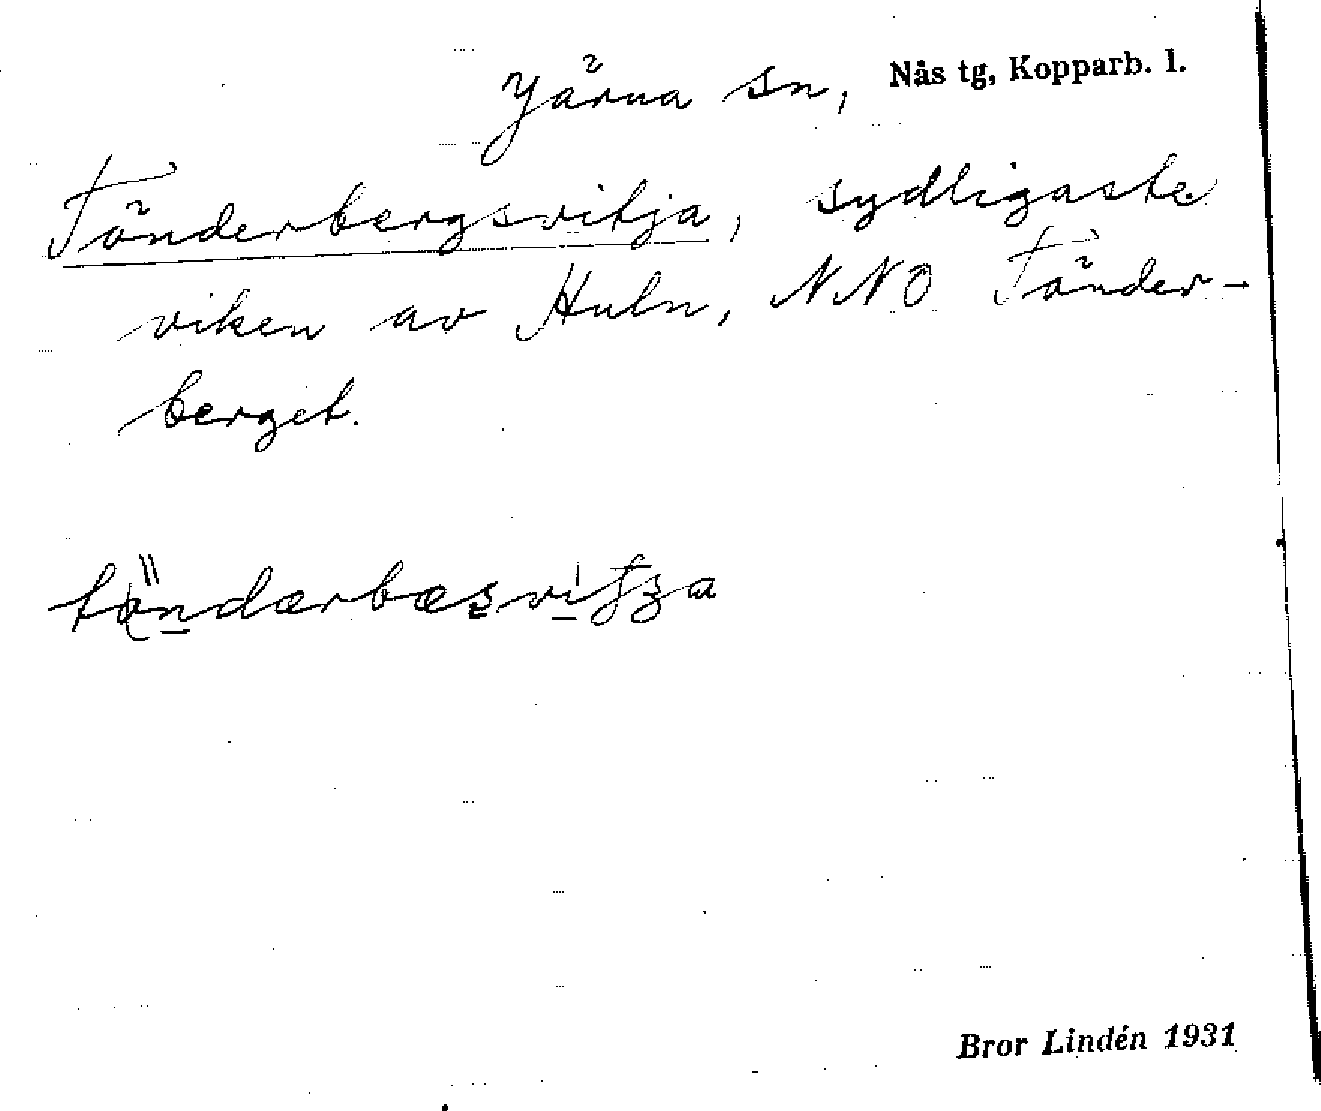 Järna sn, Nås tg, Kopparb. l.
Tönderbergsvitja, sydligaste
viken av Huln, NNO Tönder-
berget.
Bror Lindén 1931